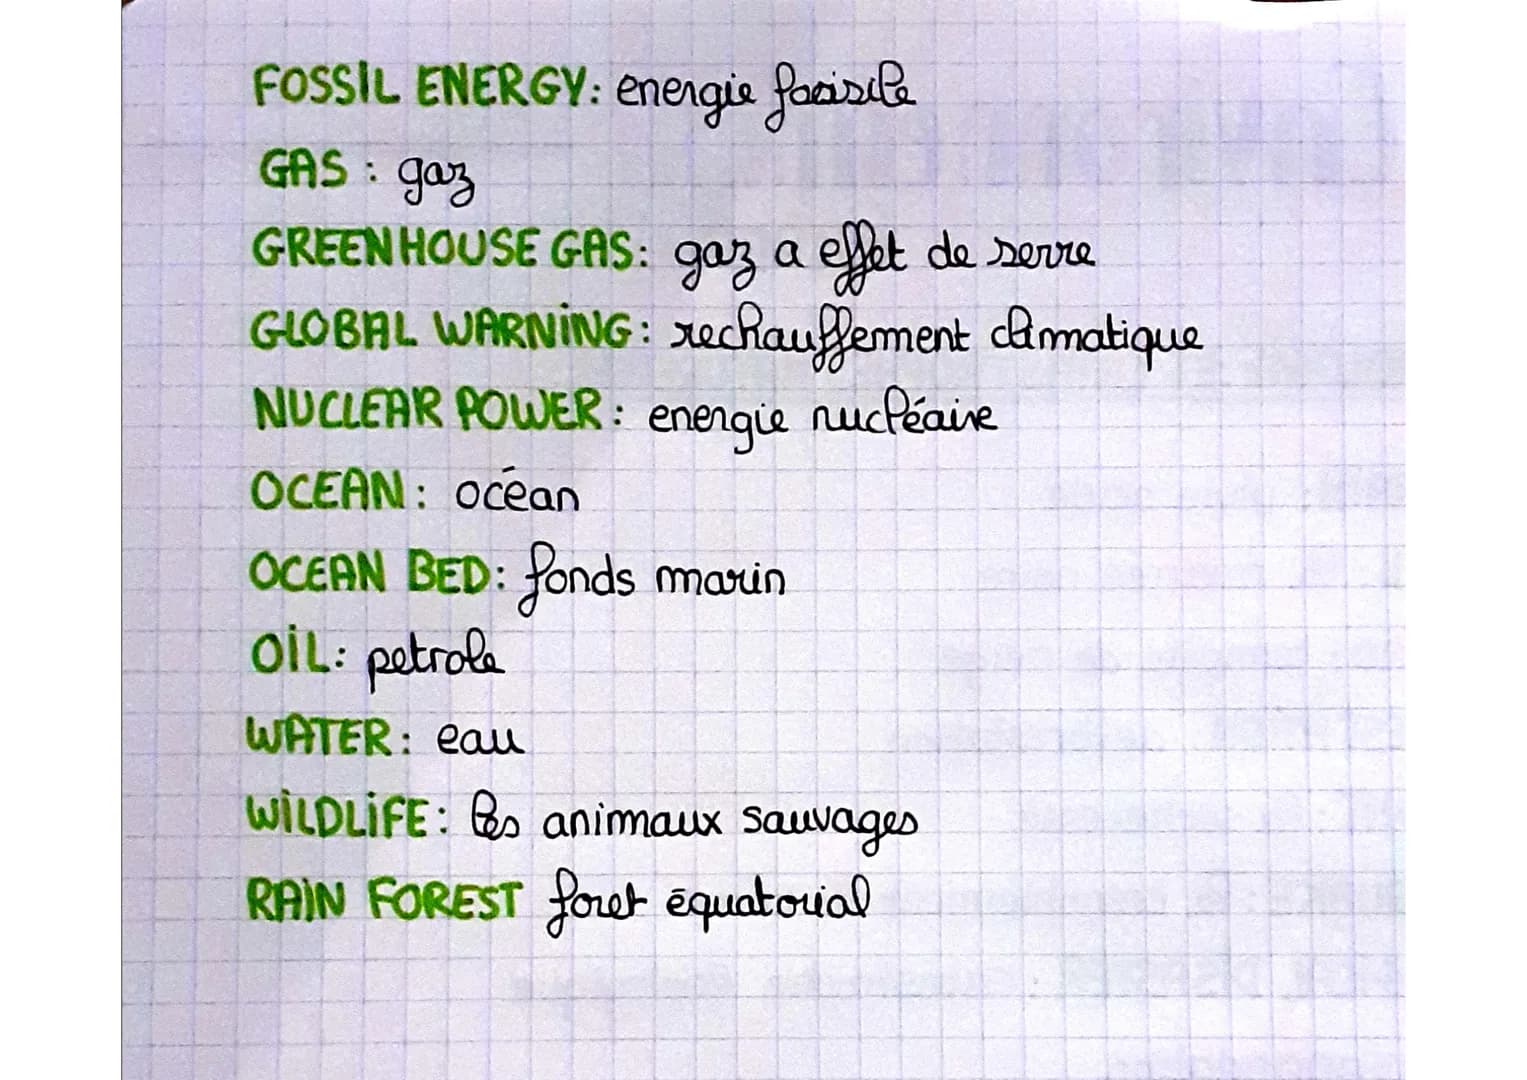 FOSSIL ENERGY: energie facisile
GAS : gaz
GREENHOUSE GAS: gaz a effet de serre
GLOBAL WARNING: rechauffement climatique
NUCLEAR POWER: energie nucléaire
OCEAN: océan
OCEAN BED: fonds marin
OIL: petrole
WATER: eau
WILDLIFE: les animaux sauvages
RAIN FOREST foret équatorial